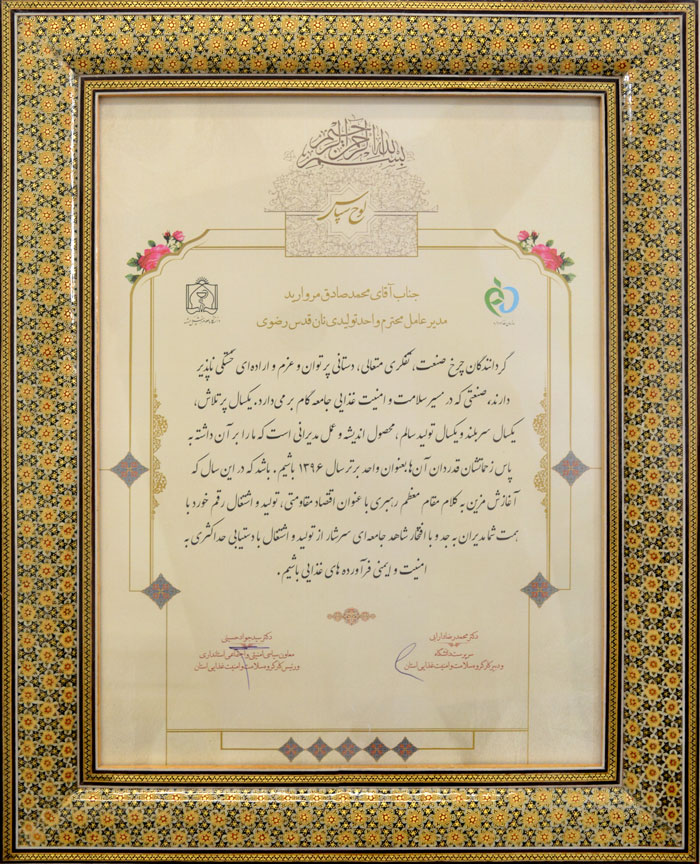 بسم الله الرحمن الرحیم
لوح سپاس
جناب آقای محمدصادق مروارید
مدیرعامل محترم واحد تولیدی نان قدس رضوی
گردانندگان چرخ صنعت، تفکری متعالی، دستانی پرتوان و عزم و اراده‌ای خستگی ناپذیر
دارند، صنعتی که در مسیر سلامت و امنیت غذایی جامعه گام برمی‌دارد. یکسال پرتلاش،
یکسال سربلند و یکسال تولید سالم، محصول اندیشه و عمل مدیرانی است که ما را بر آن داشته به
پاس زحماتشان قدردان آن‌ها بعنوان واحد برتر سال ۱۳۹۶ باشیم. باشد که در این سال که
آغازش مزین به کلام مقام معظم رهبری با عنوان اقتصاد مقاومتی، تولید و اشتغال رقم خورد با
همت شما مدیران به جد و با افتخار شاهد جامعه‌ای سرشار از تولید و اشتغال با دستیابی حداکثری به
امنیت و ایمنی فرآورده های غذایی باشیم.
دکتر محمدرضا دارابی
سرپرست دانشگاه
و دبیر کارگروه سلامت و امنیت غذایی استان
دکتر سید جواد حسینی
معاون سیاسی امنیتی و اجتماعی استانداری
و رئیس کارگروه سلامت و امنیت غذایی استان